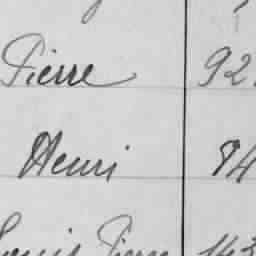 Pierre 92
Henri 84
Louis Pierre 143